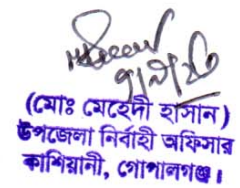 (মোঃ মেহেদী হাসান)
উপজেলা নির্বাহী অফিসার
কাশিয়ানী, গোপালগঞ্জ।